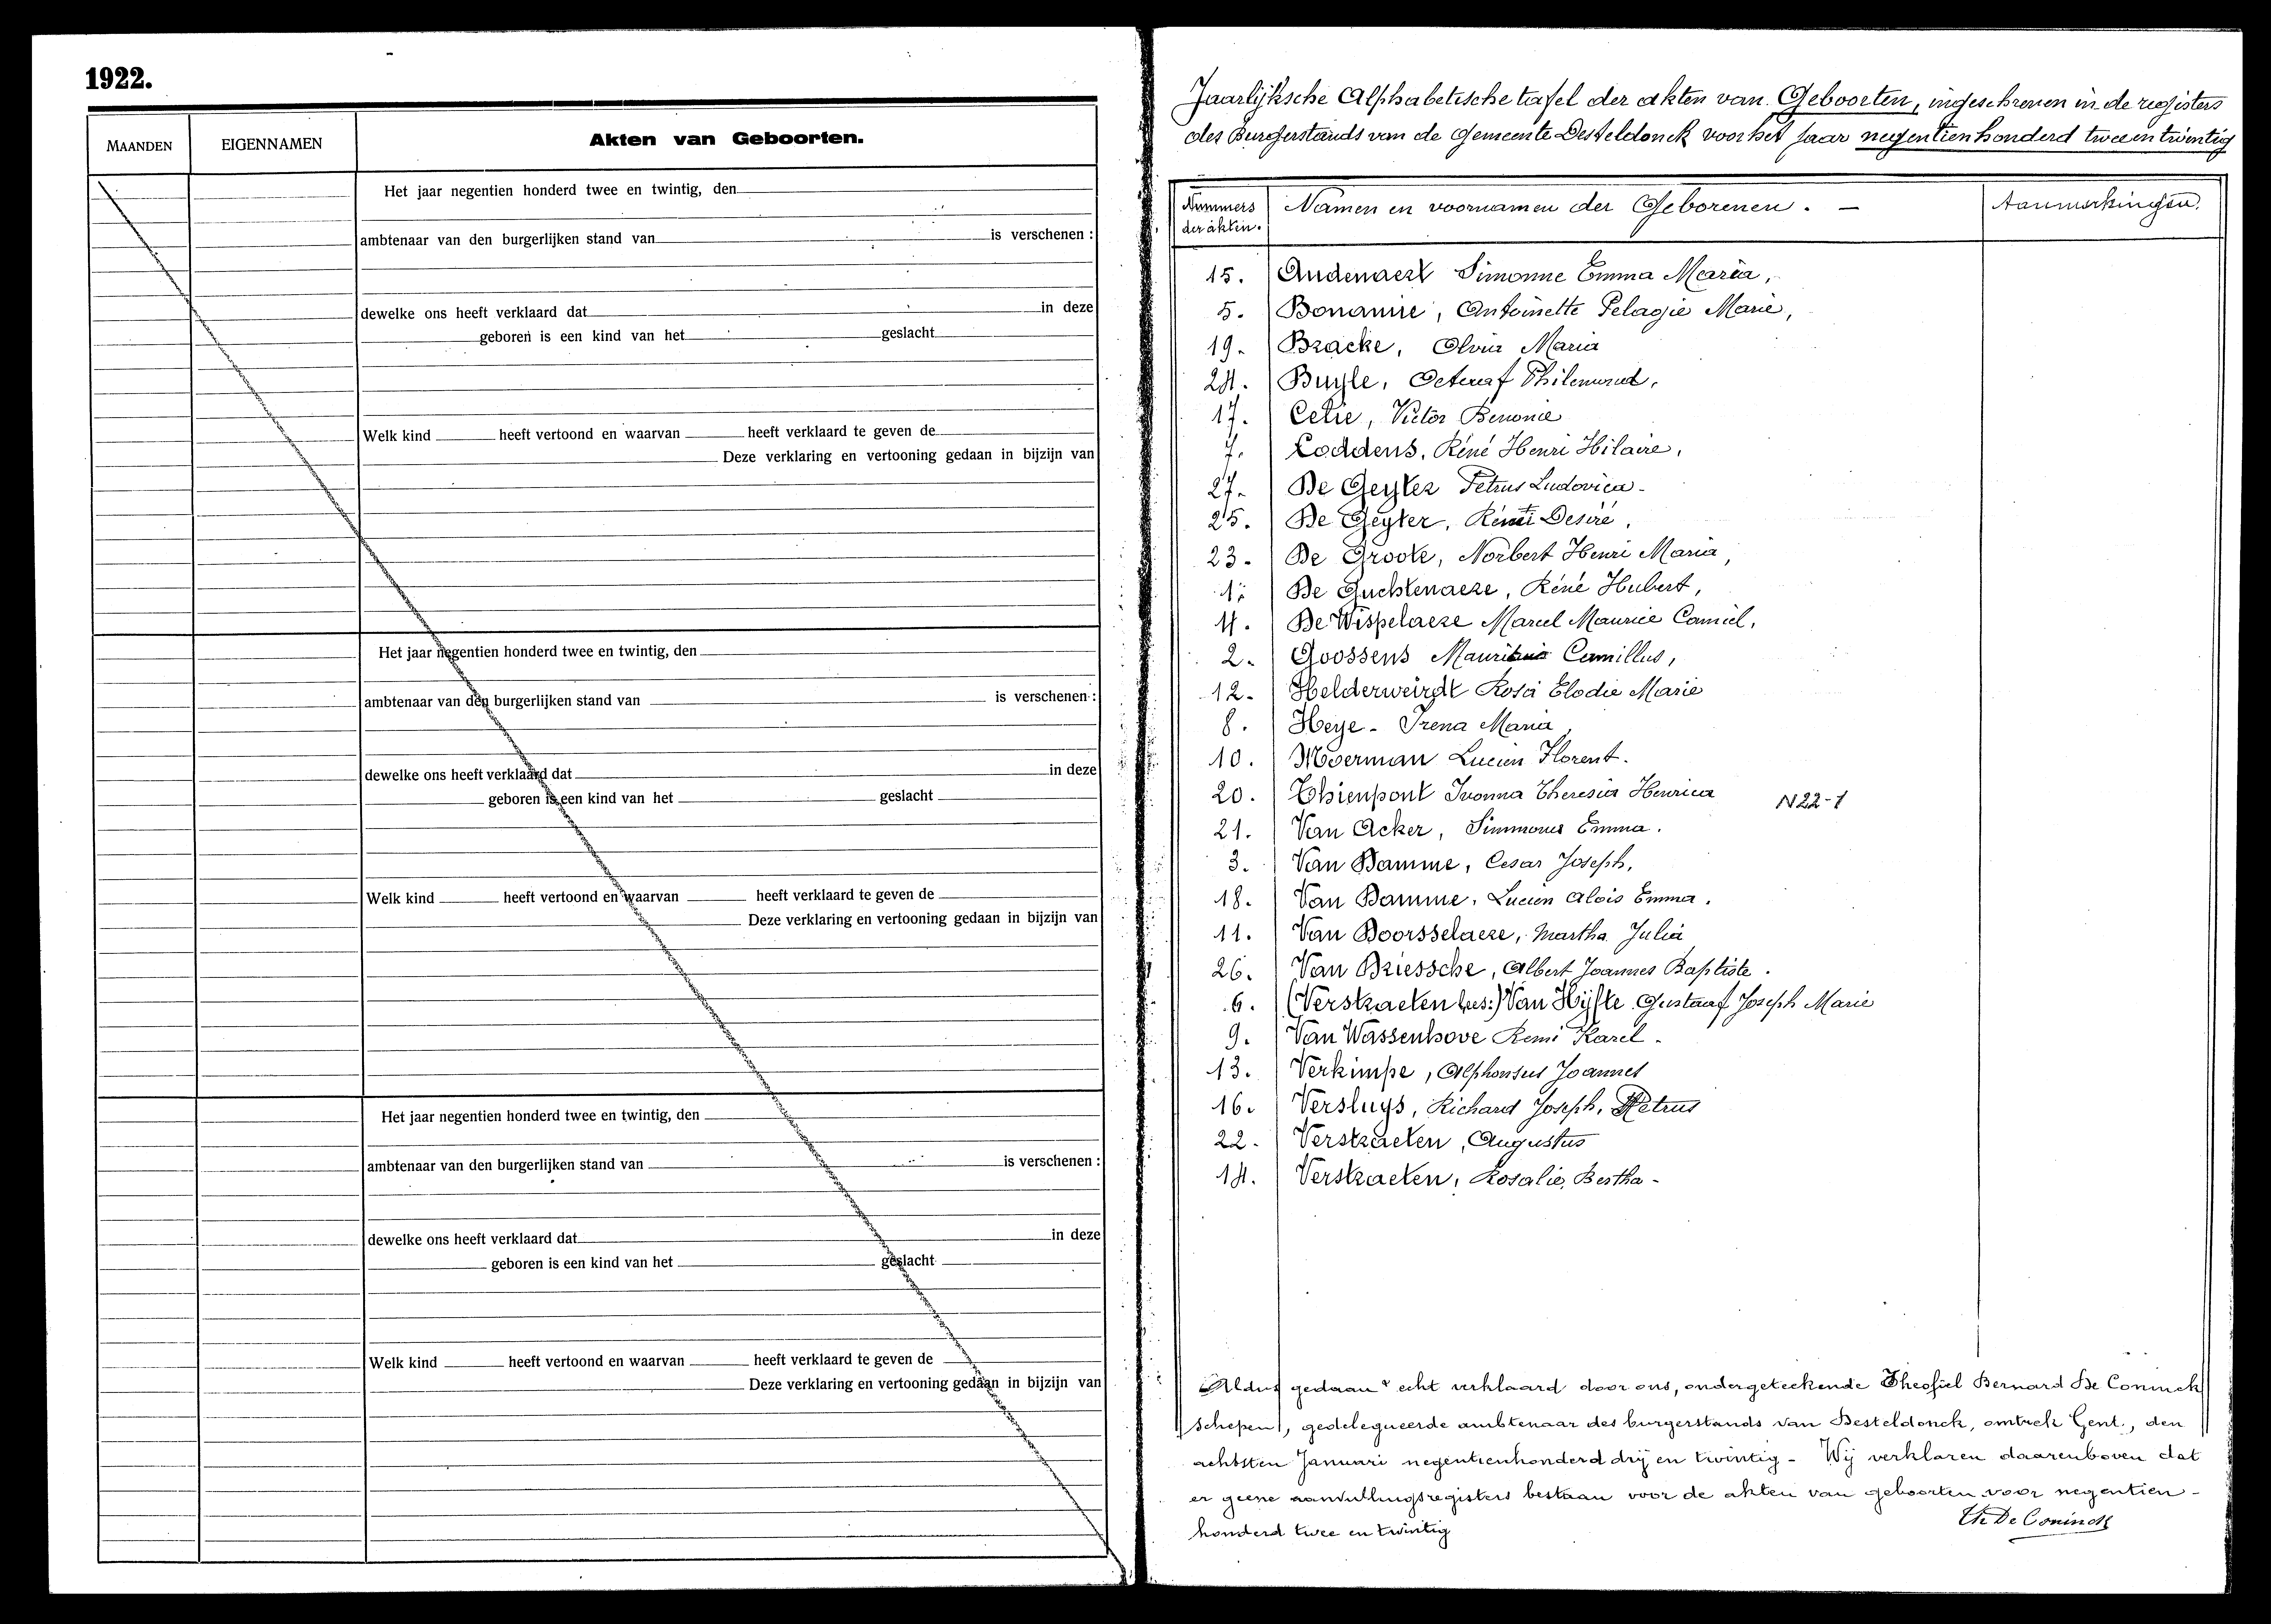 1922.
MAANDEN
EIGENNAMEN
Akten van Geboorten.
Het jaar negentien honderd twee en twintig, den
ambtenaar van den burgerlijken stand van is verschenen :
dewelke ons heeft verklaard dat in deze
geboren is een kind van het geslacht
Welk kind heeft vertoond en waarvan heeft verklaard te geven de
Deze verklaring en vertooning gedaan in bijzijn van
Het jaar negentien honderd twee en twintig, den
ambtenaar van den burgerlijken stand van is verschenen :
dewelke ons heeft verklaard dat in deze
geboren is een kind van het geslacht
Welk kind heeft vertoond en waarvan heeft verklaard te geven de
Deze verklaring en vertooning gedaan in bijzijn van
Het jaar negentien honderd twee en twintig, den
ambtenaar van den burgerlijken stand van is verschenen :
dewelke ons heeft verklaard dat in deze
geboren is een kind van het geslacht
Welk kind heeft vertoond en waarvan heeft verklaard te geven de
Deze verklaring en vertooning gedaan in bijzijn van
Jaarlijksche Alphabetische tafel der akten van Geboorten, ingeschreven in de registers
des Burgerstands van de Gemeente Desteldonck voor het jaar negentienhonderd twee en twintig
Nummers der akten.
Namen en voornamen der Geborenen. -
Aanmerkingen.
15. Audenaert Simonne Emma Maria,
5. Bonamie, Antoinette Pelagie Marie,
19. Bracke, Olvia Maria
24. Buyle, Octaaf Philemond,
17. Celie, Victor Benonie
7. Coddens, Réné Henri Hilaire,
27. De Geyter Petrus Ludovica -
25. De Geyter, Desiré,
23. De Groote, Norbert Henri Maria,
1. De Guchtenaere, Réné Hubert,
4. De Wispelaere Marcel Maurice Camiel,
2. Goossens Camillus,
12. Helderweirdt Rosa Elodie Marie
8. Heye - Irena Maria,
10. Moerman Lucien Florent.
20. Thienpont Ivonna Theresia Henrica N22-1
21. Van Acker, Simmonne Emma.
3. Van Damme, Cesar Joseph,
18. Van Damme, Lucien Alois Emma.
11. Van Doorsselaere, Martha Julia
26. Van Driessche, Albert Joannes Baptiste.
6. (Verstraeten lees:) Van Hijfte Gustaaf Joseph Marie
9. Van Wassenhove Remi Karel.
13. Verkimpe, Alphonsus Joannes
16. Versluys, Richard Joseph, Petrus
22. Verstraeten, Augustus
14. Verstraeten, Rosalie, Bertha -
Aldus gedaan & echt verklaard door ons, ondergeteekende Theofiel Bernard De Coninck
schepen, gedelegueerde ambtenaar des burgerstands van Desteldonck, omtrek Gent, den
achtsten Januari negentienhonderd drij en twintig - Wij verklaren daarenboven dat
er geene aanvullingsregisters bestaan voor de akten van geboorten voor negentien-
honderd twee en twintig
Th De Coninck